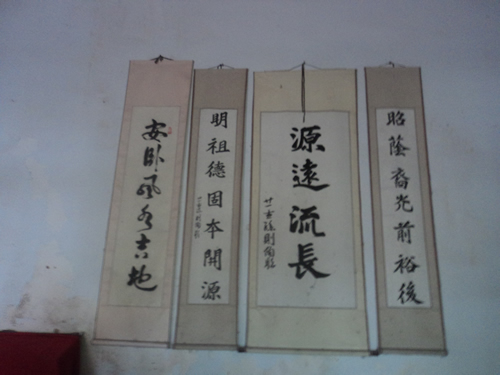 昭蔭裔光前裕後
源遠流長
明祖德固本開源
安卧風水吉地